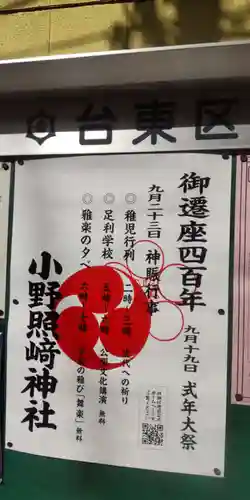 台東区
御遷座四百年
九月十九日 式年大祭
九月二十三日 神賑行事
◎稚児行列
◎足利学校
公開文化講演 無料
◎雅楽の夕べ
「舞楽」 無料
小野照崎神社